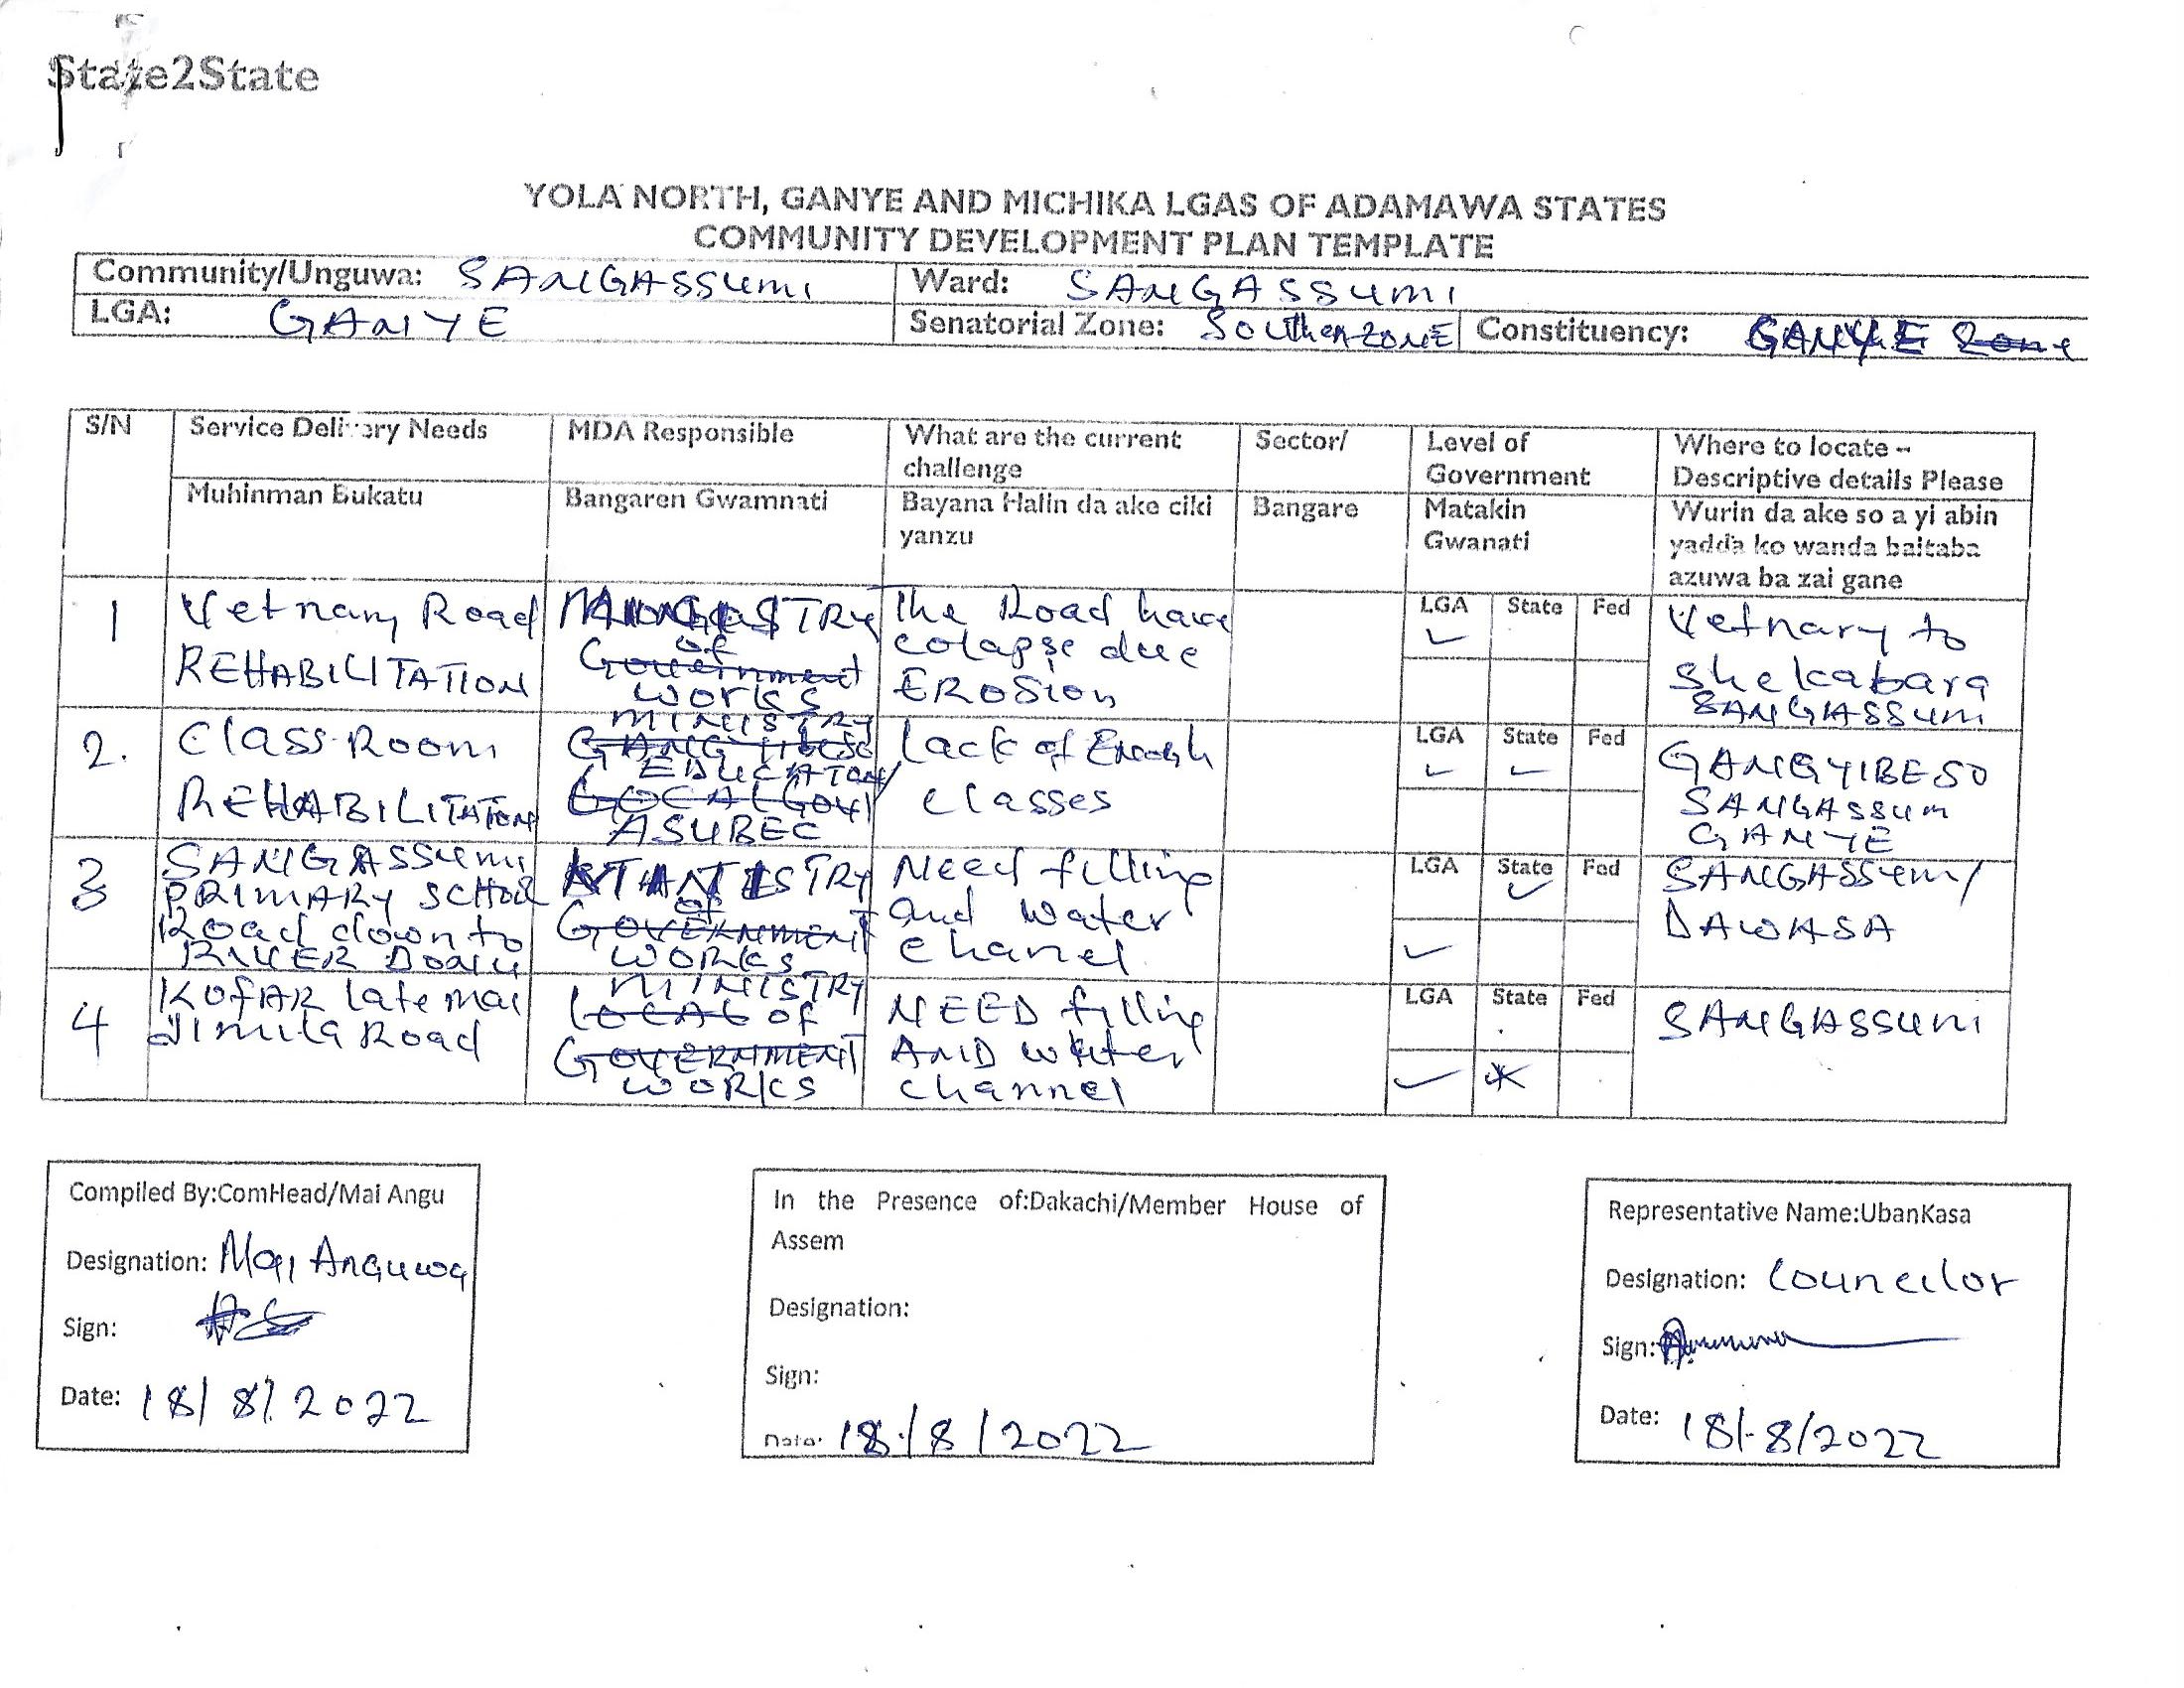 State2State
YOLA NORTH, GANYE AND MICHIKA LGAS OF ADAMAWA STATES
COMMUNITY DEVELOPMENT PLAN TEMPLATE
Community/Unguwa: SANGASSumi Ward: SANGASSumi
LGA: GANYE Senatorial Zone: Southen ZONE Constituency: GANYE Zone
S/N Service Delivery Needs MDA Responsible What are the current challenge Sector/ Level of Government Where to locate – Descriptive details Please
Muhinman Bukatu Bangaren Gwamnati Bayana Halin da ake ciki yanzu Bangare Matakin Gwanati Wurin da ake so a yi abin yadda ko wanda baitaba azuwa ba zai gane
1 Vetnary Road REHABILITATION MINISTRY of Government works The Road have colapse due EROSion LGA ✓ State Fed Vetnary to Shelcabara SANGASSumi
2. Class Room REHABILITATION MINISTRY EDUCATION/ ASUBEC Lack of Enough classes LGA ✓ State ✓ Fed GANGYIBESO SANGASSUM GANYE
3 SANGASSumi PRIMARY SCHOOL Road down to RIVER MINISTRY of GOVERNMENT WORKS Need filling and water chanel LGA State ✓ Fed ✓ SANGASSum/ DAWASA
4 KOFAR late mai Jimila Road MINISTRY LOCAL of GOVERNMENT WORKS NEED filling AND water channel LGA State Fed ✓ SANGASSumi
Compiled By:ComHead/Mai Angu
Designation: Mai Anguwa
Sign:
Date: 18/8/2022
In the Presence of:Dakachi/Member House of
Assem
Designation:
Sign:
Date: 18/8/2022
Representative Name:UbanKasa
Designation: Councilor
Sign:
Date: 18/8/2022